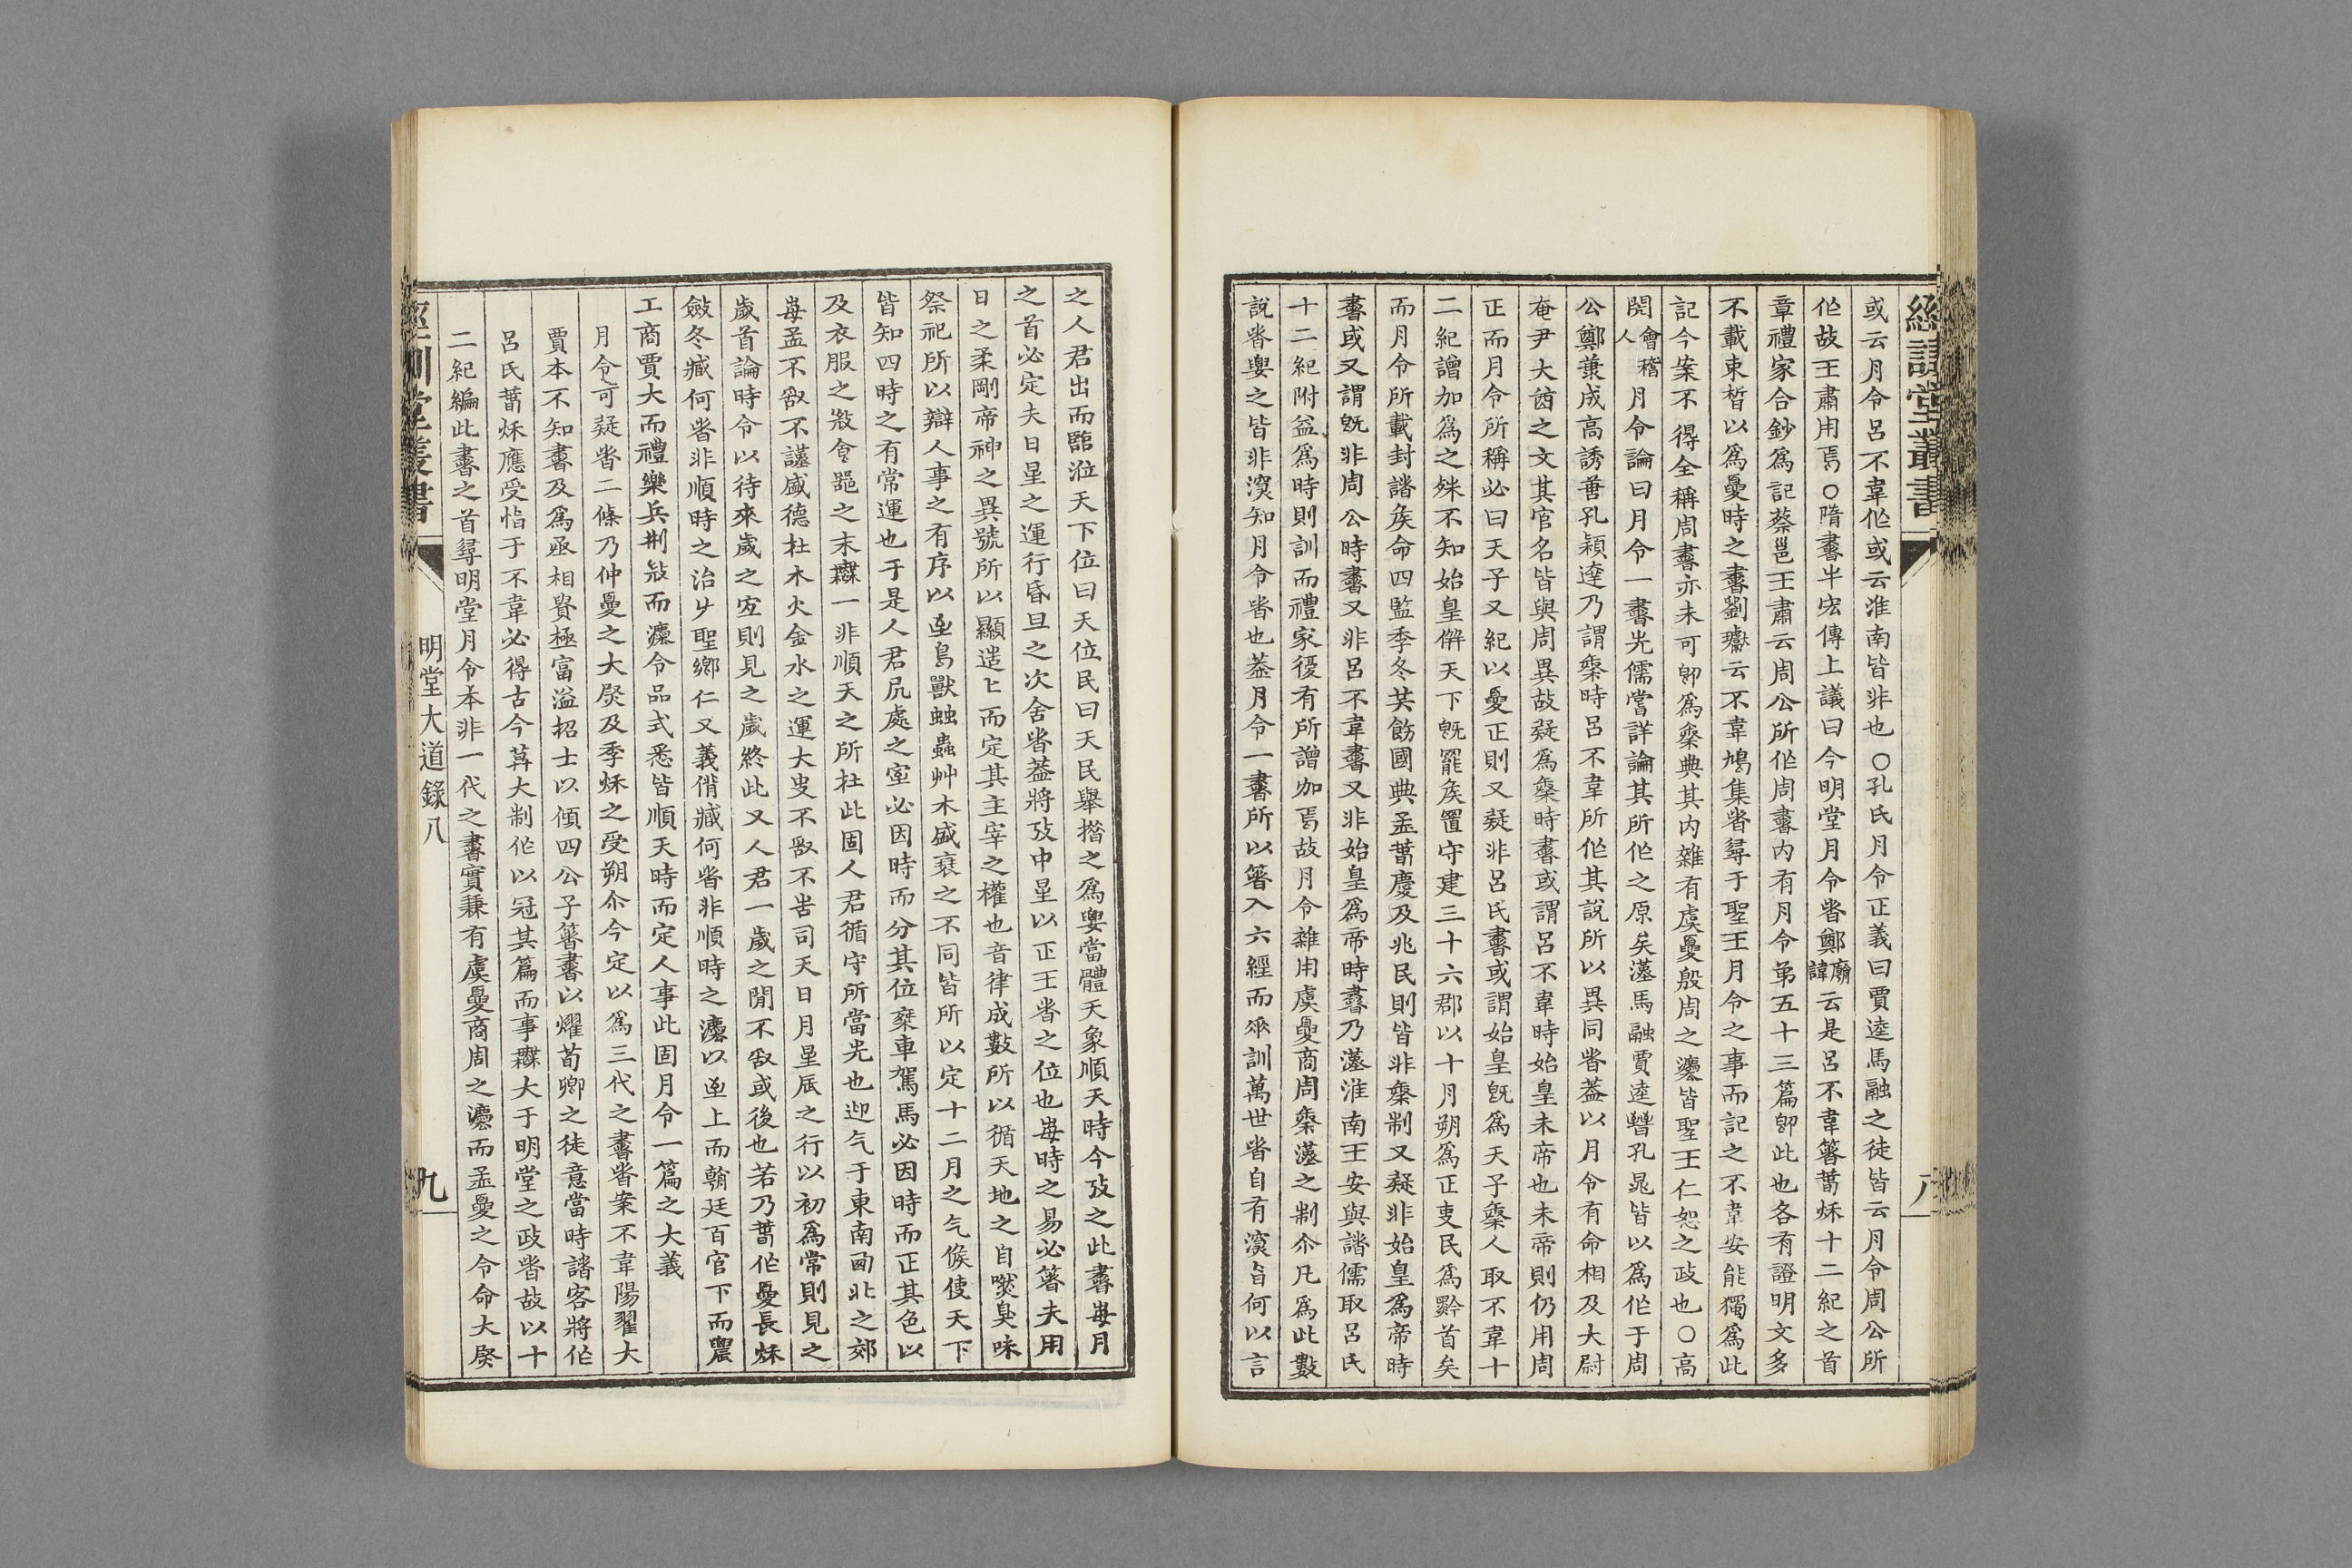 經訓堂叢書
八
或云月令呂不韋作或云淮南皆非也〇孔氏月令正義曰賈逵馬融之徒皆云月令周公所
作故王肅用焉〇隋書牛宏傳上議曰今明堂月令者鄭廟諱云是呂不韋箸萅秌十二紀之首
章禮家合鈔爲記蔡邕王肅云周公所作周書內有月令弟五十三篇卽此也各有證明文多
不載束晳以爲夏時之書劉瓛云不韋鳩集者尋于聖王月令之事而記之不韋安能獨爲此
記今案不得全稱周書亦未可卽爲秦典其內雜有虞夏殷周之灋皆聖王仁恕之政也〇高
閌會稽人月令論曰月令一書先儒嘗詳論其所作之原矣漢馬融賈逵暨孔晁皆以爲作于周
公鄭兼成高誘曹孔穎達乃謂秦時呂不韋所作其說所以異同者葢以月令有命相及大尉
奄尹大酋之文其官名皆與周異故疑爲秦時書或謂呂不韋時始皇未帝也未帝則仍用周
正而月令所稱必曰天子又紀以夏正則又疑非呂氏書或謂始皇旣爲天子秦人取不韋十
二紀譄加爲之殊不知始皇倂天下旣罷矦置守建三十六郡以十月朔爲正叓民爲黔首矣
而月令所載封諸矦命四監季冬共飭國典孟萅慶及兆民則皆非秦制又疑非始皇爲帝時
書或又謂旣非周公時書又非呂不韋書又非始皇爲帝時書乃漢淮南王安與諸儒取呂氏
十二紀附益爲時則訓而禮家復有所譄加焉故月令雜用虞夏商周秦漢之制尒凡爲此數
說者要之皆非㴱知月令者也葢月令一書所以箸入六經而㸚訓萬世者自有㴱旨何以言
之人君出而臨涖天下位曰天位民曰天民舉措之爲要當體天象順天時今攷之此書每月
之首必定夫日星之運行昏旦之次舍者葢將攷中星以正王者之位也每時之易必箸夫用
日之柔剛帝神之異號所以顯造匕而定其主宰之權也音律成數所以循天地之自嘫臭味
祭祀所以辯人事之有序以至鳥獸蚰蟲艸木盛衰之不同皆所以定十二月之气候使天下
皆知四時之有常運也于是人君凥處之室必因時而分其位椉車駕馬必因時而正其色以
及衣服之㪚會器之末霖一非順天之所杜此固人君循守所當先也迎气于東南西北之郊
每孟不敢不謹盛德杜木火金水之運大叓不敢不告司天日月星辰之行以初爲常則見之
歲首論時令以待來歲之宜則見之歲終此又人君一歲之閒不敢或後也若乃萅作夏長秌
斂冬臧何者非順時之治𠂔聖鄉仁又義偝臧何者非順時之灋以至上而朝廷百官下而農
工商賈大而禮樂兵㓝敍而灋令品式悉皆順天時而定人事此固月令一篇之大義
月令可疑者二條乃仲夏之大𠋫及季秌之受朔尒今定以爲三代之書者案不韋陽翟大
賈本不知書及爲丞相貴極富溢招士以傾四公子箸書以燿荀卿之徒意當時諸客將作
呂氏萅秌應受恉于不韋必得古今算大制作以冠其篇而事霖大于明堂之政者故以十
二紀編此書之首尋明堂月令本非一代之書實兼有虞夏商周之灋而孟夏之令命大𠋫
明堂大道錄八
九
經訓堂叢書